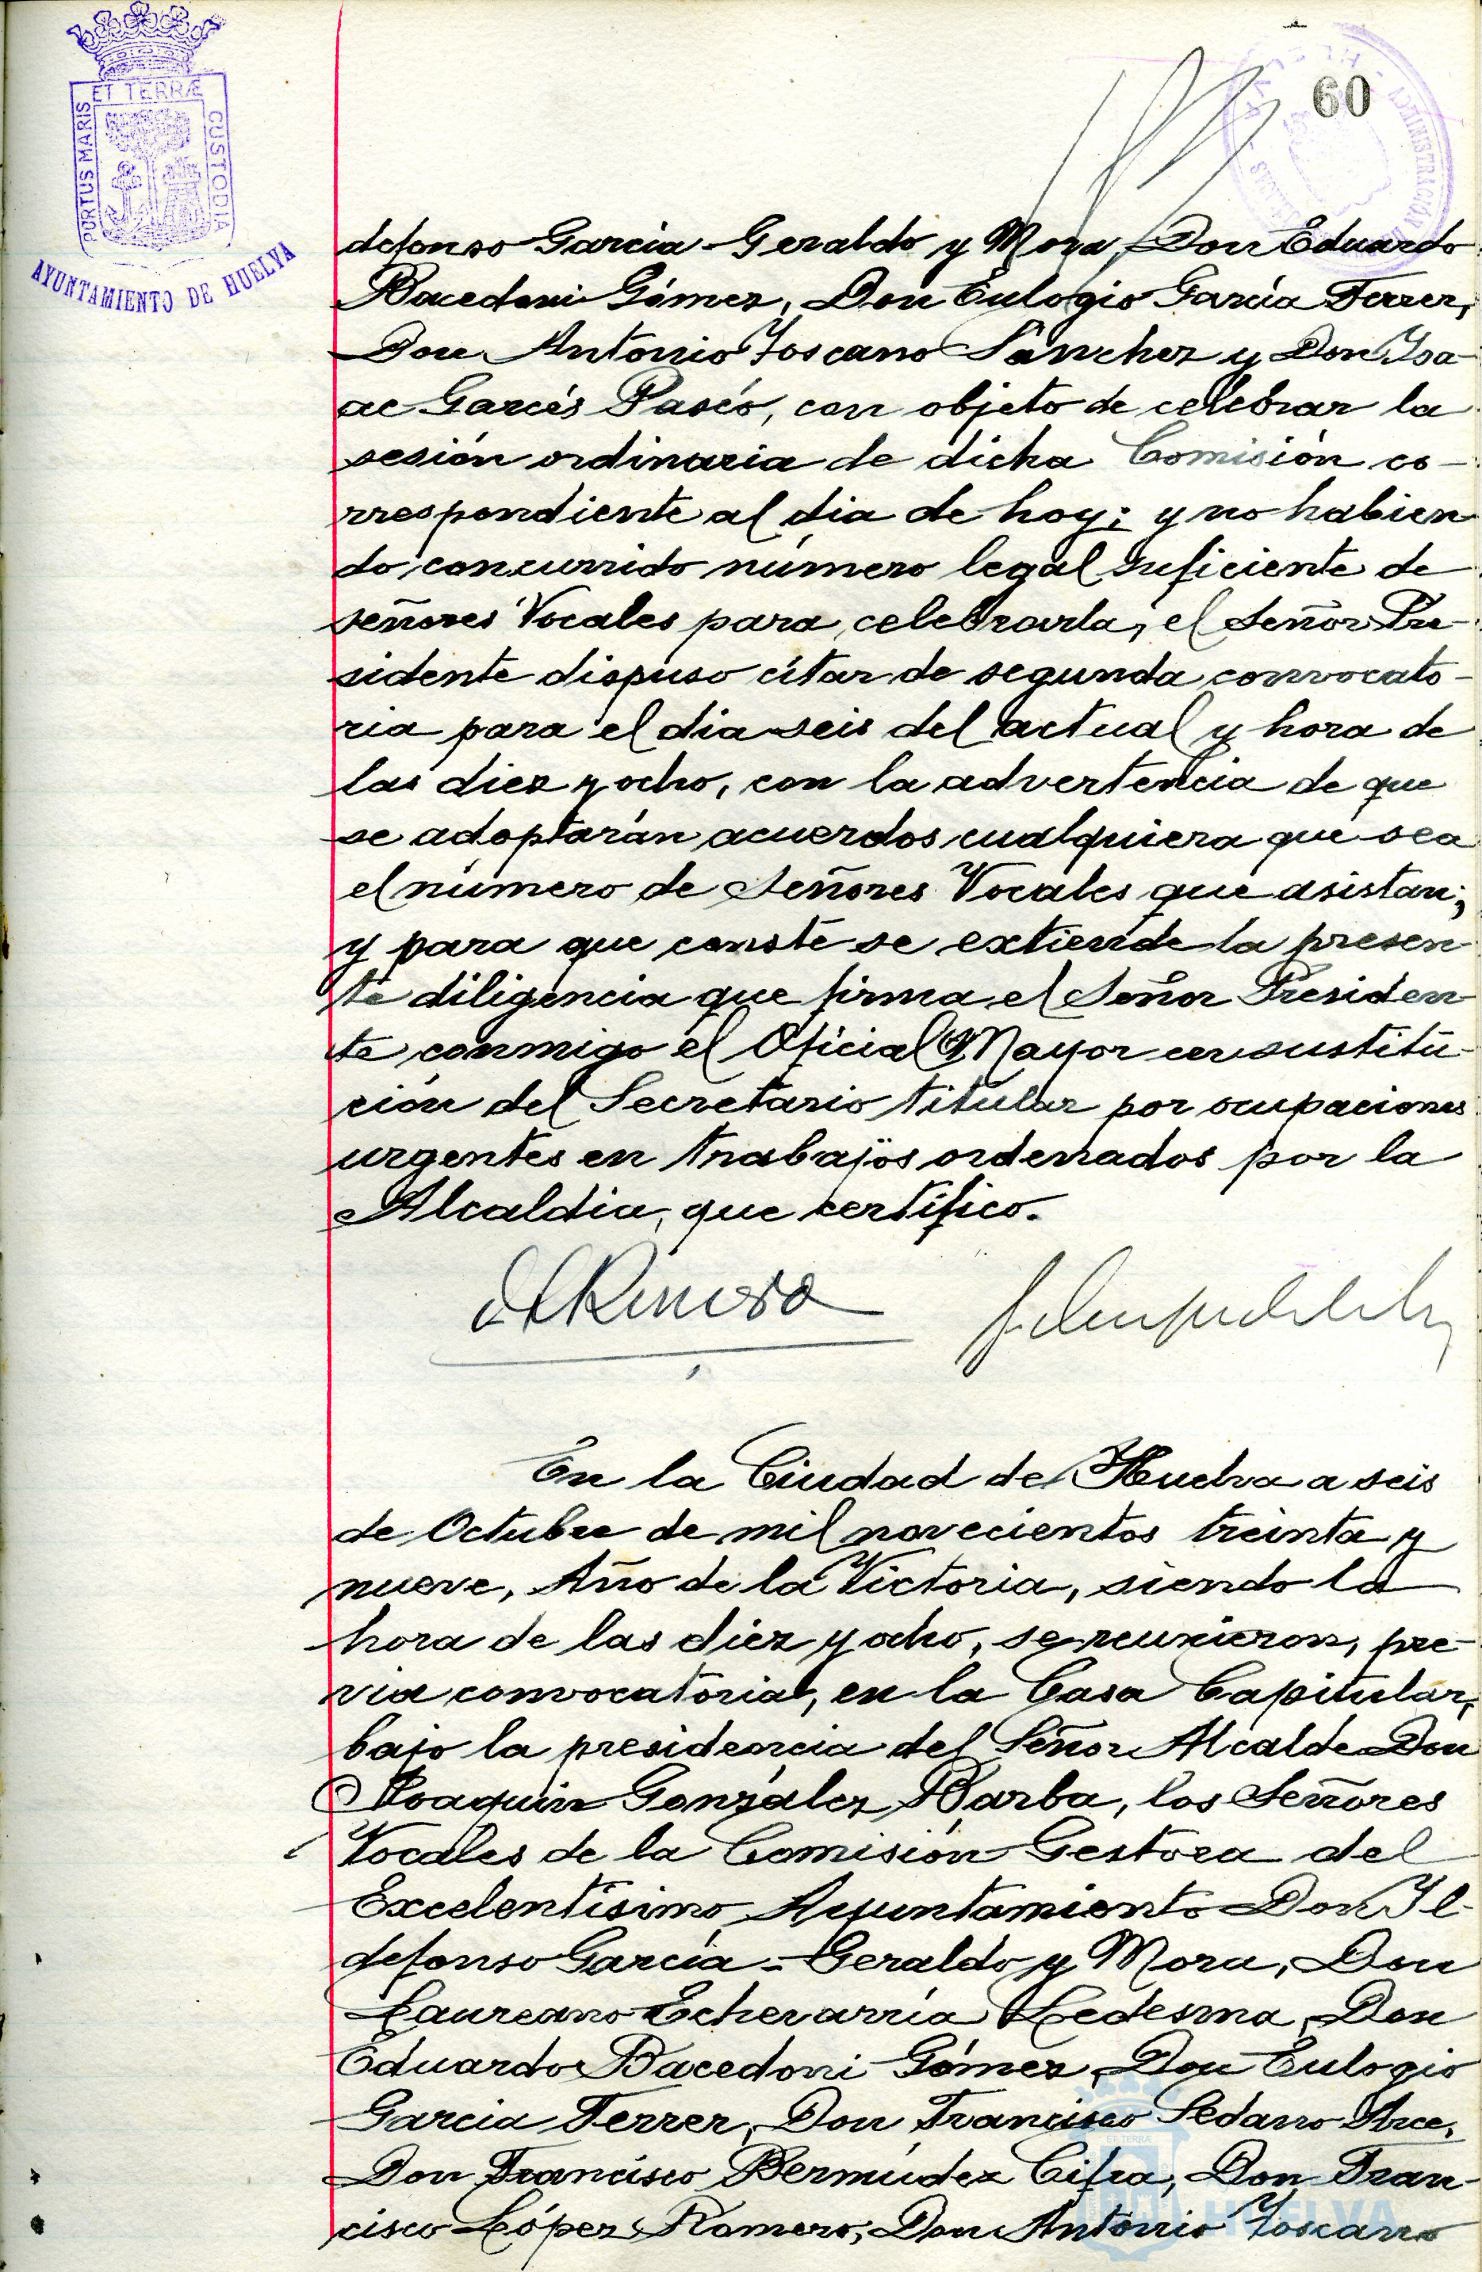 PORTUS MARIS ET TERRÆ CUSTODIA
AYUNTAMIENTO DE HUELVA
60
ADMINISTRACIÓN
defonso García-Geraldo y Mora, Don Eduardo
Bacedoni Gómez, Don Eulogio García Ferrer,
Don Antonio Toscano Sánchez y Don Isa-
ac Garcés Paseó, con objeto de celebrar la
sesión ordinaria de dicha Comisión co-
rrespondiente al dia de hoy; y no habien
do concurrido número legal suficiente de
señores Vocales para celebrarla, el Señor Pre-
sidente dispuso citar de segunda convocato-
ria para el dia seis del actual y hora de
las diez y ocho, con la advertencia de que
se adoptarán acuerdos cualquiera que sea
el número de Señores Vocales que asistan;
y para que conste se extiende la presen
te diligencia que firma el Señor Presiden-
te conmigo el Oficial Mayor en sustitu-
ción del Secretario titular por ocupaciones
urgentes en trabajos ordenados por la
Alcaldia, que certifico.
En la Ciudad de Huelva a seis
de Octubre de mil novecientos treinta y
nueve, Año de la Victoria, siendo la
hora de las diez y ocho, se reunieron, pre-
via convocatoria, en la Casa Capitular,
bajo la presidencia del Señor Alcalde Don
Joaquin González Barba, los Señores
Vocales de la Comisión Gestora del
Excelentísimo Ayuntamiento Don Il-
defonso García-Geraldo y Mora, Don
Laureano Echevarría Ledesma, Don
Eduardo Bacedoni Gómez, Don Eulogio
Garcia Ferrer, Don Francisco Sedano Arce,
Don Francisco Bermúdez Cifra, Don Fran-
cisco López Romero, Don Antonio Toscano
HUELVA